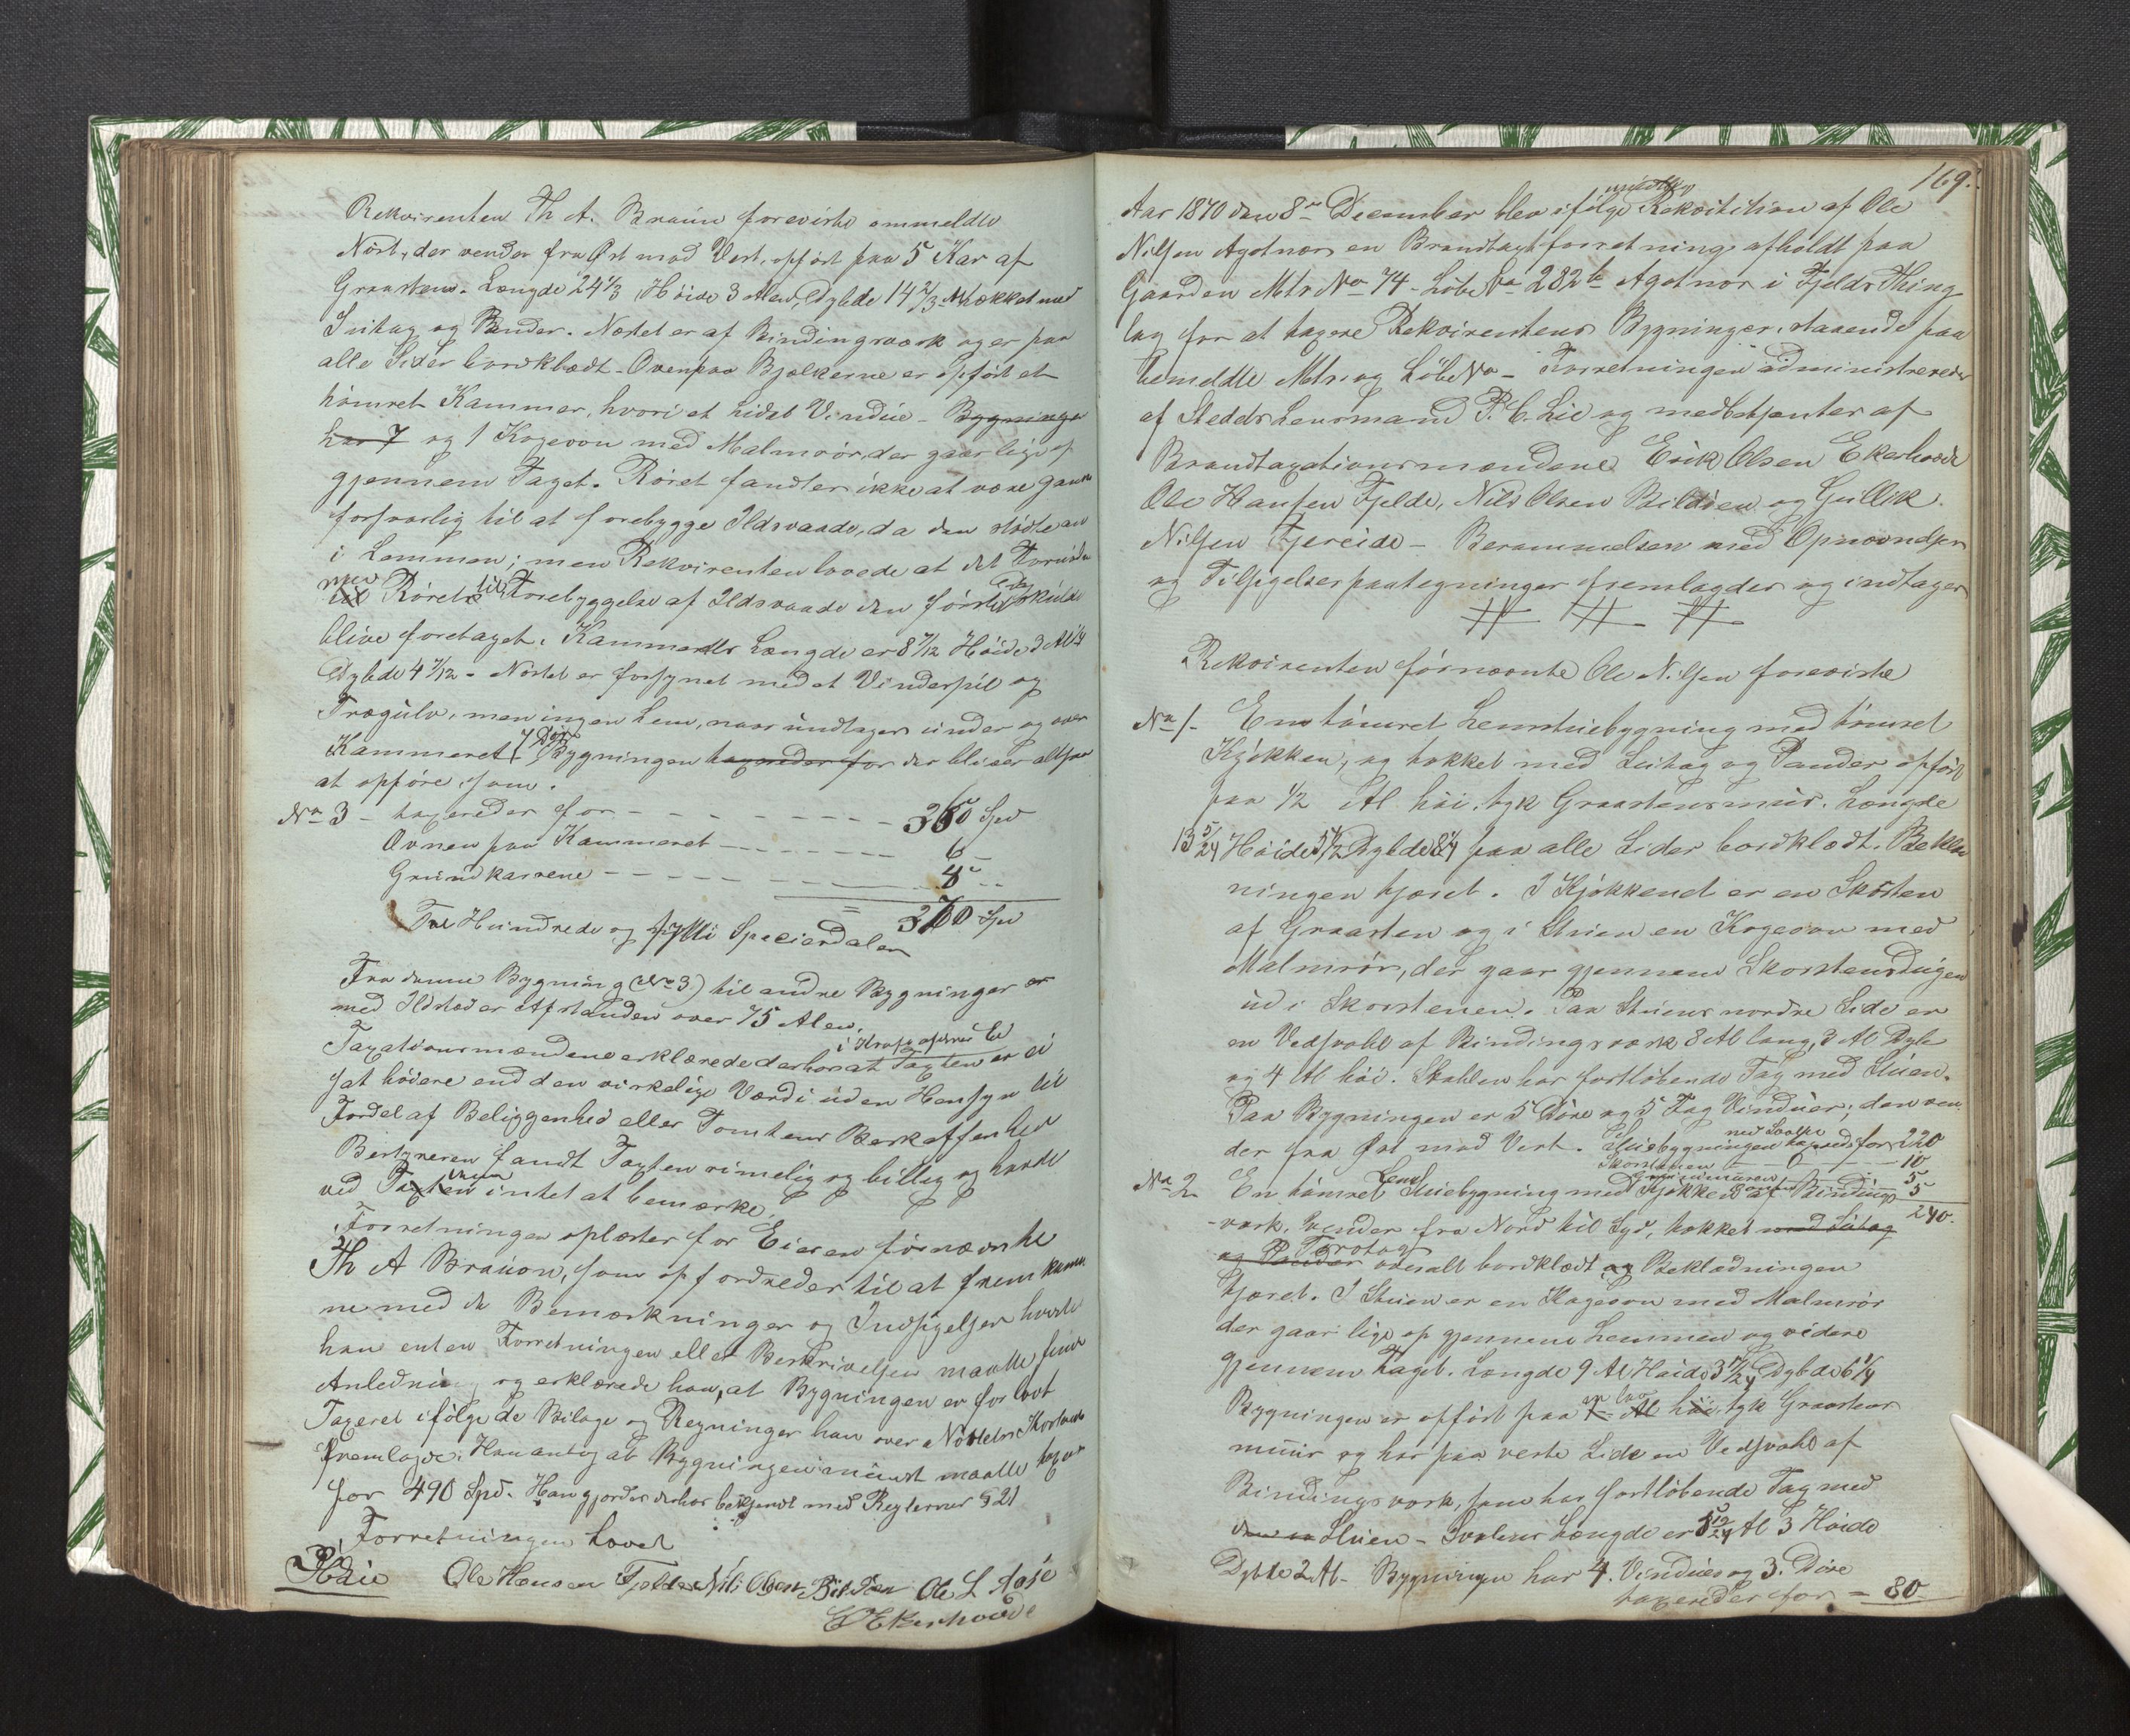 Rekvirenten Th A. Braun foreviste ommeldte
Nöst, der vender fra Öst mod Vest, opfört paa 5 Kar af
Graasteen. Længde 24 1/3, Höide 3 Alen, Dybde 14 2/3 Al, tækket med
og Pander. Nöstet er af Bindingsværk og er paa
alle Sider bordklædt - Ovenpaa Bjælkerne er opfört et
tömret Kammer, hvori et lidet Vindue - Bygninge
har 7 og 1 Kogeovn med Malmrör, der gaar lige op
gjennem Taget. Röret fandtes ikke at være ganske
forsvarlig til at forebygge Ildsvaade, da den stödte an
i Lemmen; men Rekvirenten lovede at det Fornödne
med Röret til Forebyggelse af Ildsvaade den förste Dag skulde
blive foretaget. Kammerets Længde er 8 7/12 Höide 3 Al 1/4
Dybde 4 7/12 - Nöstet er forsynet med et Vinderspil og
Trægulv, men ingen Lem, naar undtages under og over
Kammeret. 7 Döre Bygningen taxeredes for der bliver altsaa
at opföre som.
No 3 - taxeredes for - - - - - - - - 350 Spd
Ovnen paa Kammeret - - - - - - 6
Grundkarrene - - - - - - 4 - -
= 360 Spd
Tre Hundrede og Speciedaler
Fra denne Bygning (No 3) til andre Bygninger er
med Ildsted er Afstanden over 75 Alen.
Taxationsmændene erklærede derhos at Taxten er ei
i Kraft af deres Ed
sat höiere end den virkelige Værdi uden Hensyn til
Fordel af Beliggenhed eller Tomtens Beskaffenhed
Bestyreren fandt Taxten rimelig og billig og havde
ved Taxten intet at bemærke.
Forretningen oplæstes for Eieren fornævnte
Th A Braun, som opfordredes til at fremkom
me med de Bemærkninger og Indsigelser hvortil
han enten Forretningen eller Beskrivelsen maatte finde
Anledning og erklærede han, at Bygningen er for lavt
Taxeret ifölge de Bilage og Regninger han over Nöstets Kostende
fremlagde. Han antog at Bygningen mindst maatte taxeres
for 490 Spd. Han gjordes derhos bekjendt med Reglernes § 21
Forretningen hævet
P Lie Ole Hansen Fjelde Nils Olsen Bildöen Ole L Aase
E O Ekerhovde
169.
Aar 1870 den 8de December blev ifölge mundtlig Rekvisition af Ole
Nilsen Agotnæs en Brandtaxtforretning afholdt paa
Gaarden Mtr No 74 - Löbe No 282 b Agotnæs i Fjelds Thing
lag for at taxere Rekvirentens Bygninger, staaende paa
bemeldte Mtr. og Löbe No - Forretningen administreredes
af Stedets Lensmand P. C. Lie og medbetjentes af
Brandtaxationsmændene Erik Olsen Ekerhovde
Ole Hansen Fjelde, Nils Olsen Bildöen og Gullik
Nilsen Tjereide - Berammelsen med Opnævnelses
og Tilsigelsespaategninger fremlagdes og indtages
# # #
Rekvirenten förnævnte Ole Nilsen foreviste
No 1 - En tömret Lemstuebygning med tömret
Kjökken, og tækket med Lutag og Pander opfört
paa 1/2 Al höi, tyk Graasteensmur. Længde
13 5/24 Höide 5 1/2 Dybde 8 1/4 paa alle Sider bordklædt. Beklæd
ningen tjæret. I Kjökkenet er en Skorsten
af Graasten og i Stuen en Kogeovn med
Malmrör, der gaar gjennem Skorstensvæggen
ud i Skorstenen. Paa Stuens nordre Side er
en Vedsvahl af Bindingsværk 8 Al lang, 3 Al Dyb
og 4 Al höi. Svahlen har fortlöbende Tag med Stuen.
Paa Bygningen er 5 Döre og 5 Fag Vinduer; den ven
der fra Öst mod Vest. Stuebygningen med Svalen taxeredes for 220
Skorstenen - - 0 - - - 10
Grundmuren - - 5
No 2 En tömret Lem Stuebygning med Kjökken af Bindings 5
240.
-værk. Vender fra Nord til Syd, tækket med Lutag
og Pander Torvtag overalt bordklædt og Beklædningen
tjæret. I Stuen er en Kogeovn med Malmrör
der gaar lige op gjennem Lemmen og videre
gjennem Taget. Længde 9 Al Höide 3 17/24 Dybde 6 1/4
Bygningen er opfört paa en lav Al höi, tyk Graasteens
muur og har paa vestre Side en Vedsvahl af
Bindingsværk, som har fortlöbende Tag med
den er Stuen - Svalens Længde er 5 19/24 Al 3 Höide
Dybde 2 Al - Bygningen har 4 Vinduer og 3 Döre
taxeredes for = 80